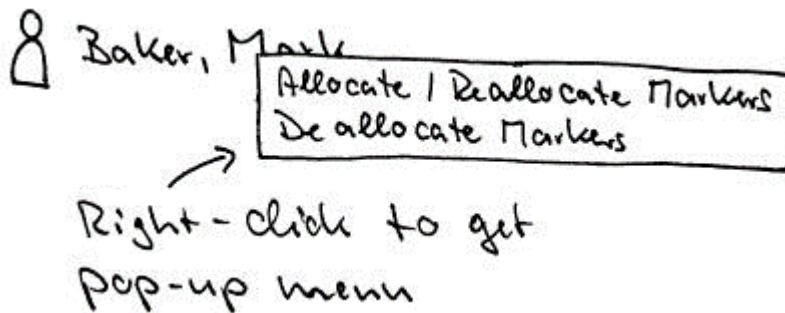 Baker, Mark
Allocate / Reallocate Markers
Deallocate Markers
Right-click to get
pop-up menu